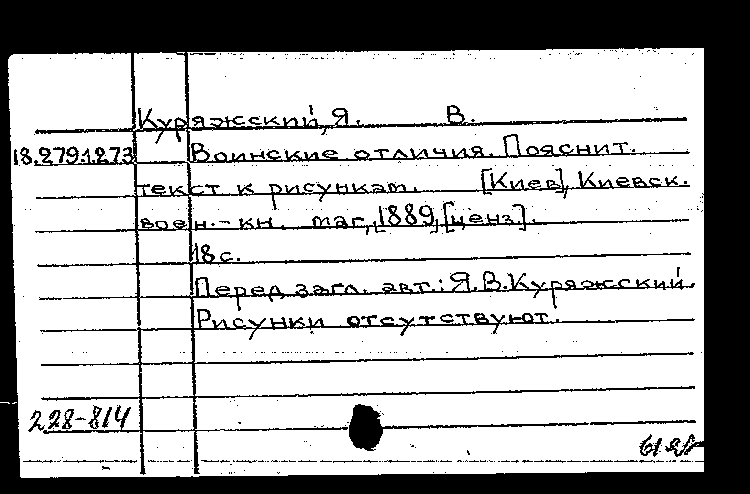 Куряжский, Я. В.
18.279.1.273 Воинские отличия. Пояснит.
текст к рисункам. [Киев], Киевск.
воен.-кн. маг., 1889, [ценз].
18 с.
Перед загл. авт.: Я.В.Куряжский.
Рисунки отсутствуют.
228-814